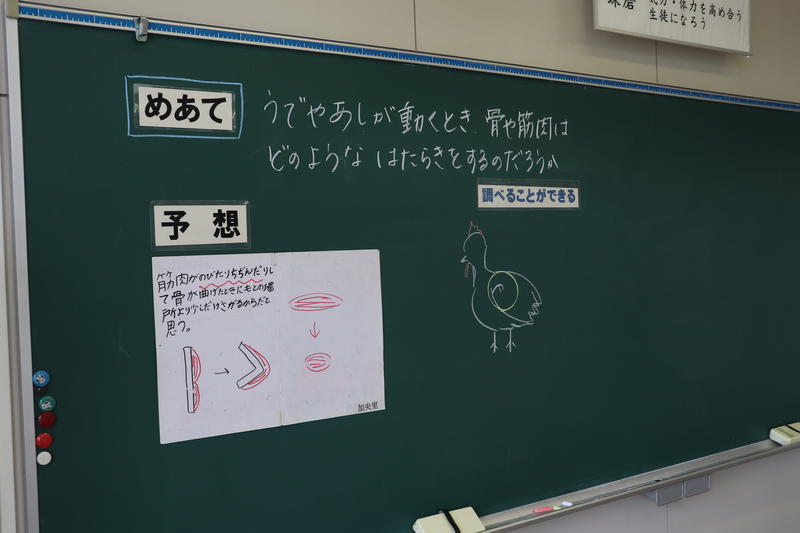 気力・体力を高め合う
生徒になろう
めあて
うでやあしが動くとき、骨や筋肉は
どのような はたらきをするのだろうか
調べることができる
予想
筋肉がのびたりちぢんだりし
て骨が曲げたときにもとの場
所より少しだけさがるからだと
思う。
加央里